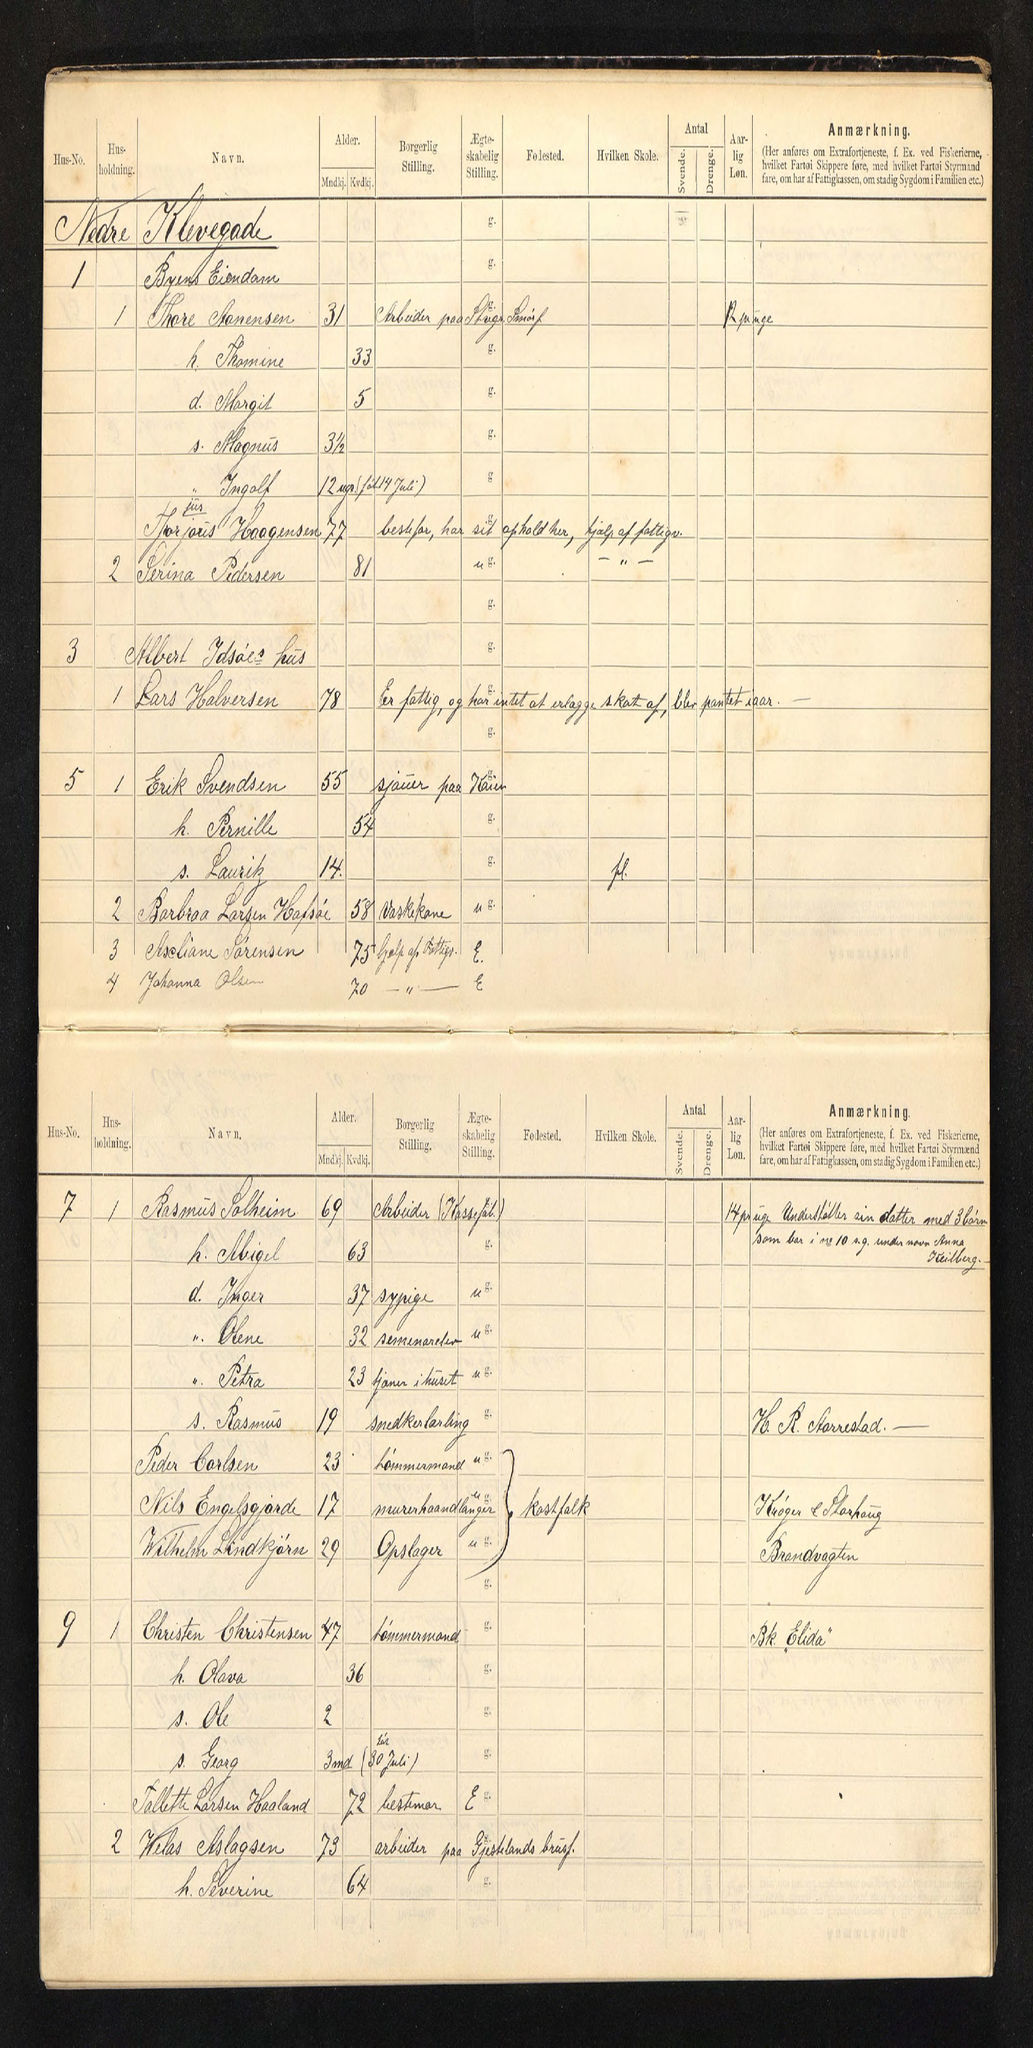 Hus-No. Hus-holdning. Navn. Alder. Mndkj. Kvdkj. Borgerlig Stilling. Ægte-skabelig Stilling. Fødested. Hvilken Skole. Antal Svende. Drenge. Aar-lig Løn. Anmærkning.
(Her anføres om Extrafortjeneste, f. Ex. ved Fiskerierne, hvilket Fartøi Skippere føre, med hvilket Fartøi Styrmænd fare, om har af Fattigkassen, om stadig Sygdom i Familien etc.)
Nedre Klevegade g.
1 Byens Eiendam g.
1 Thore Aanensen 31 Arbeider paa g. Smørf pr uge
h. Thomine 33 g.
d. Margit 5 g.
s. Magnus 3½ g.
" Ingolf 12 ugr. (föt 14 Juli) g
jus
Thorjøris Haagensen 77 bestefar, har sit ophold her, hjælp af fattigv. g.
2 Serina Pedersen 81 u g. — " —
g.
3 Albert Idsøes hus g.
1 Lars Halversen 78 Er fattig, og har intet at erlægge skat af, blev pantet iaar. — g.
g.
5 1 Erik Svendsen 55 sjouer paa Kaien g.
h. Pernille 54 g.
s. Lauritz 14. g. fl.
2 Barbraa Larsen Hafsøe 58 Vaskekone u g.
3 Axeliane Sørensen 75 hjelp af Fattigv. E.
4 Johanna Olsen 70 — " — E
Hus-No. Hus-holdning. Navn. Alder. Mndkj. Kvdkj. Borgerlig Stilling. Ægte-skabelig Stilling. Fødested. Hvilken Skole. Antal Svende. Drenge. Aar-lig Løn. Anmærkning.
(Her anføres om Extrafortjeneste, f. Ex. ved Fiskerierne, hvilket Fartøi Skippere føre, med hvilket Fartøi Styrmænd fare, om har af Fattigkassen, om stadig Sygdom i Familien etc.)
7 1 Rasmus Solheim 69 Arbeider (Kassefab.) 14 pr uge Understøtter sin datter med 3 børn
h. Abigel 63 g. som bor i no 10 s.g. under navn Anna
Keilberg. —
d. Inger 37 sypige u g.
". Olene 32 semenarelev u g.
". Petra 23 tjener i huset u g.
s. Rasmus 19 snedkerlærling g. H. R. Aarrestad. —
Peder Carlsen 23 tømmermand u g.
Nils Engelsgjerde 17 murerhaandlanger u g. kostfolk Krøger & Storhoug
Wilhelm Lindkjørn 29 Opslager u g. Brandvagten
g.
9 1 Christen Christensen 47 tømmermand g. Bk. "Elida"
h. Olava 36 g.
s. Ole 2 g.
s. Georg 3 md (föt 30 Juli) g.
Tallette Larsen Haaland 72 bestemor E g.
2 Welas Aslagsen 73 arbeider paa Gjestelands brusf. g.
h. Severine 64 g.